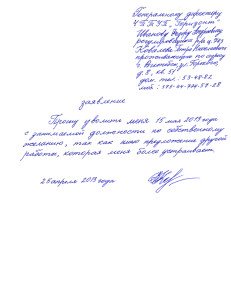 Генеральному директору
ЧТПУП "Горизонт"
Иванову Фёдору Фёдоровичу
Ковалёва Петра Николаевича
проживающего по адресу
г. Витебск, ул.
д. 8, кв. 51
дом. тел.: 53-48-82
моб.: 375-44-774-57-28
заявление
Прошу уволить меня 15 мая 2013 года
с занимаемой должности по собственному
желанию, так как имею предложение другой
работы, которая меня более устраивает.
25 апреля 2013 года